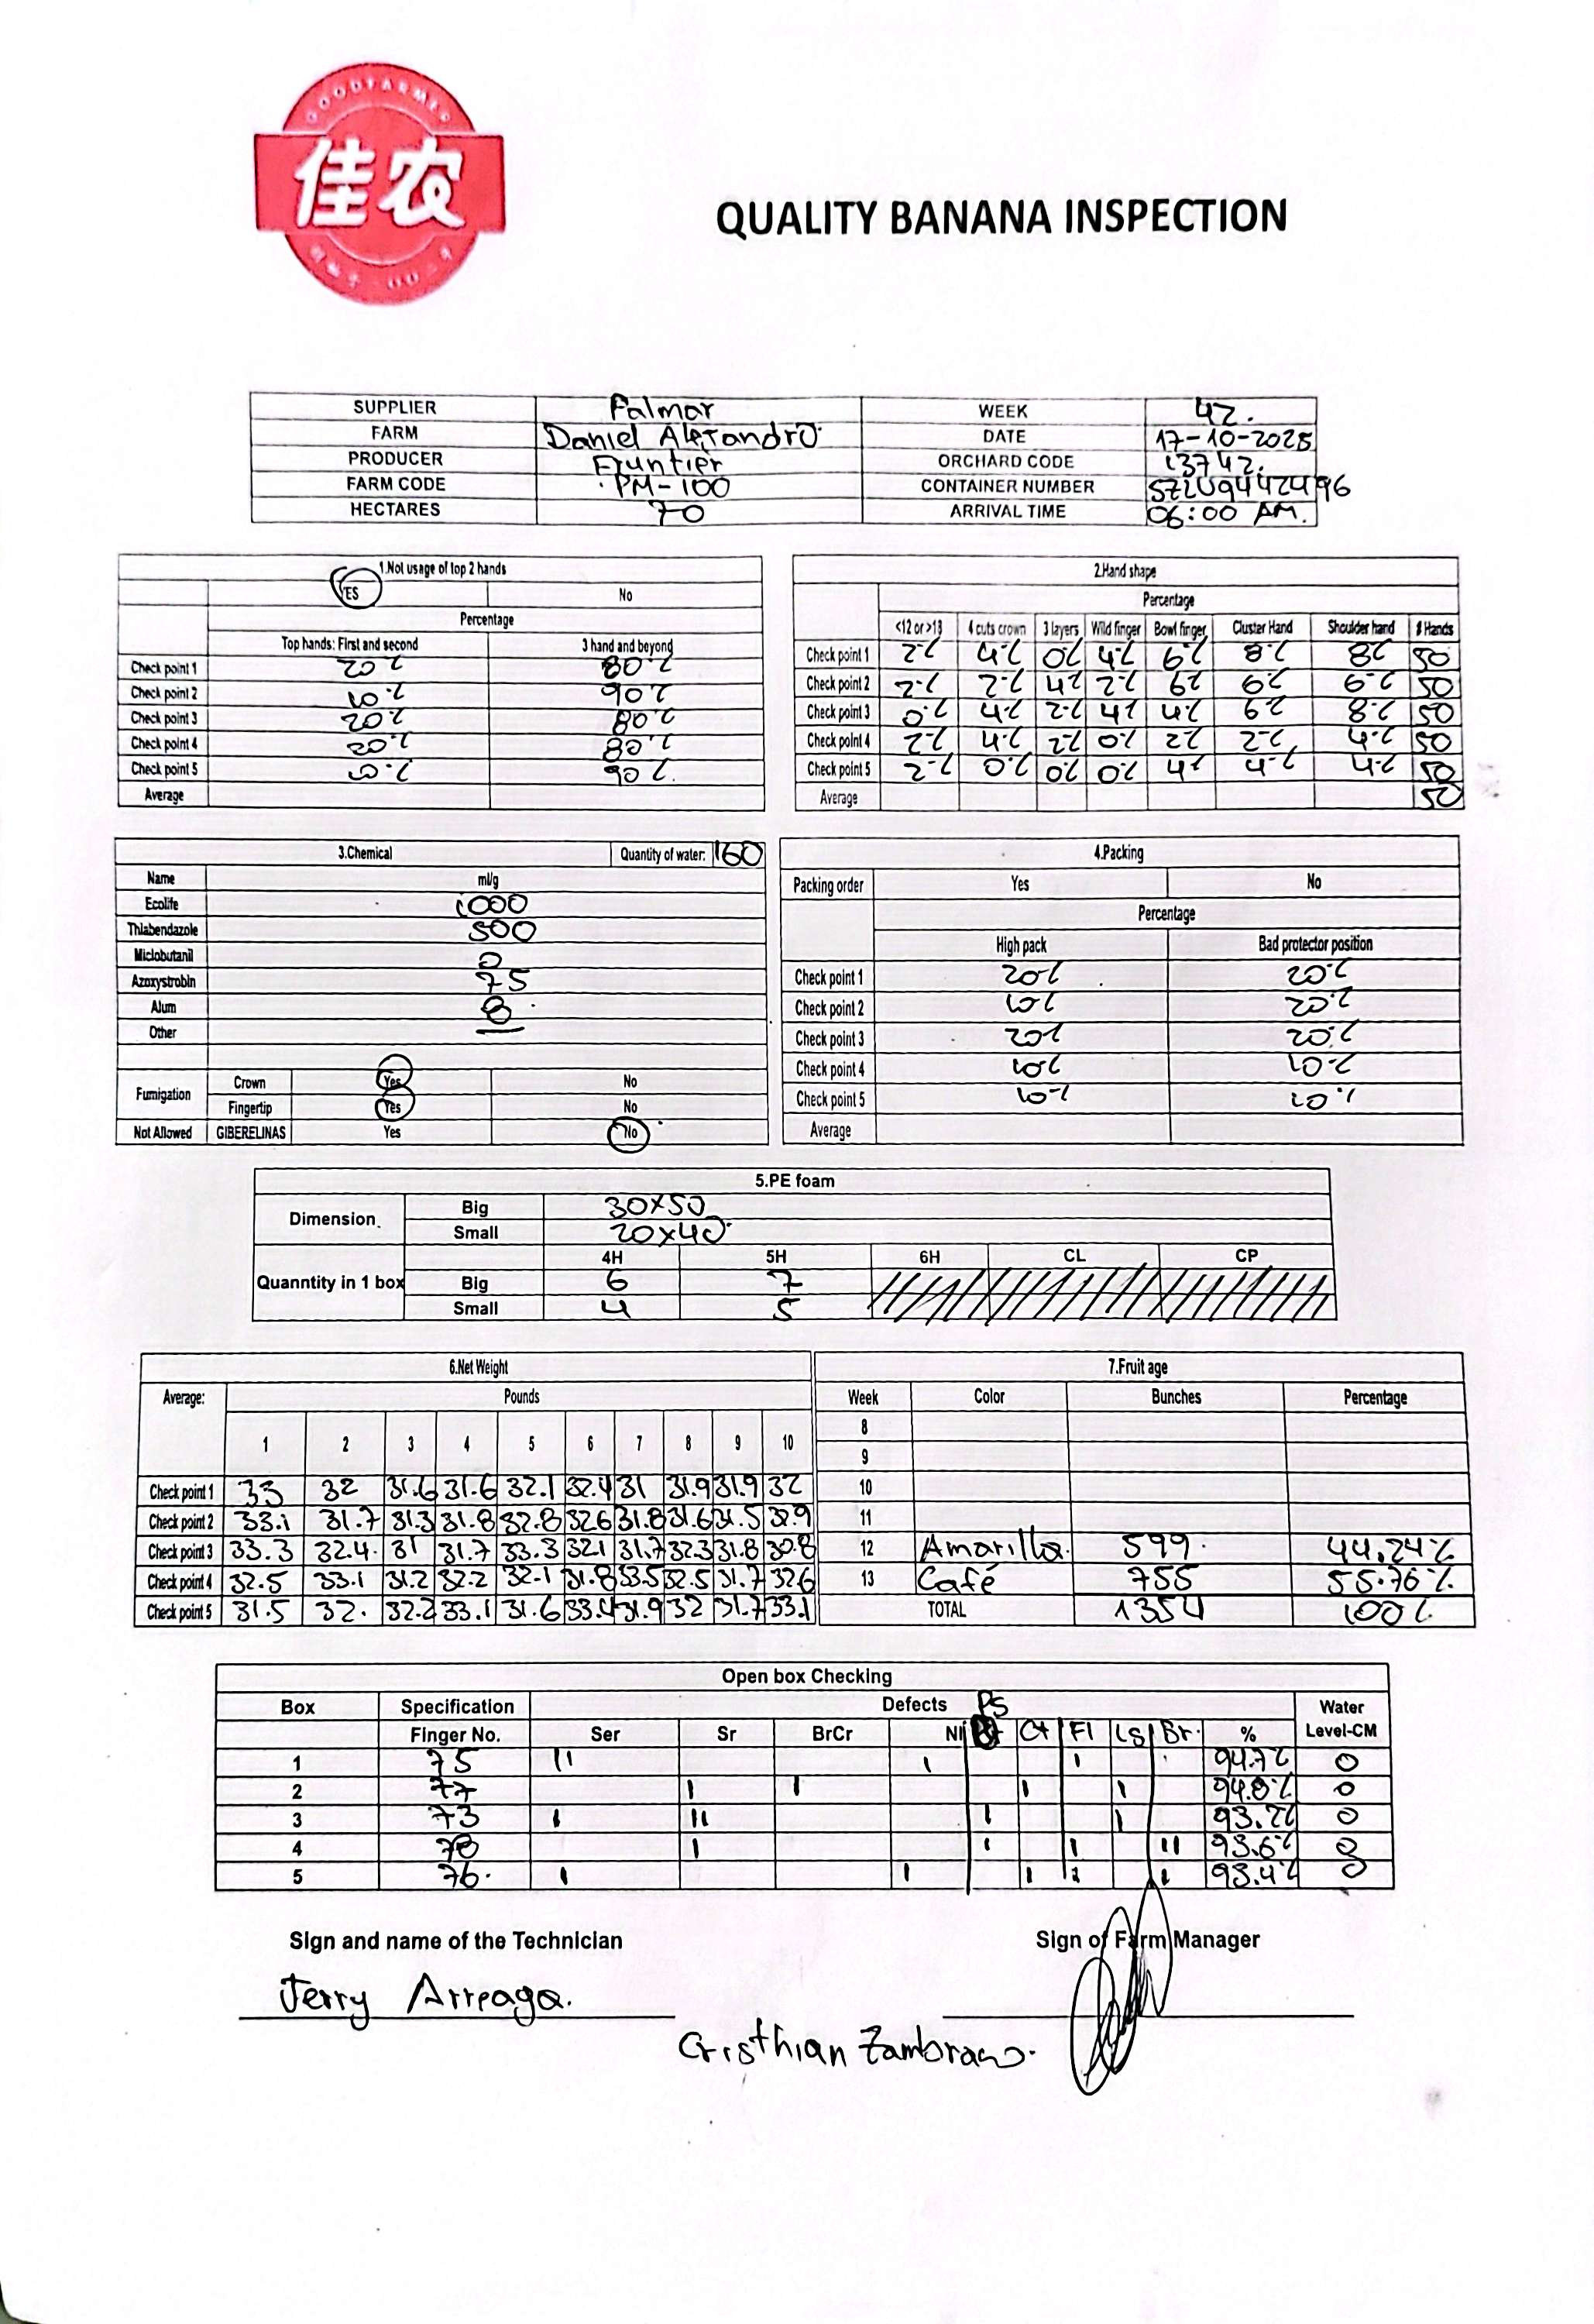 GOODFARMER
佳农
QUALITY BANANA INSPECTION
SUPPLIER Palmar WEEK 42.
FARM Daniel Alejandro DATE 17-10-2025
PRODUCER Fruntier ORCHARD CODE 13742.
FARM CODE PM-100 CONTAINER NUMBER
HECTARES 70 ARRIVAL TIME 06:00 AM.
1.Not usage of top 2 hands
YES No
Percentage
Top hands: First and second 3 hand and beyond
Check point 1 20% 80%
Check point 2 10% 90%
Check point 3 20% 80%
Check point 4 20% 80%
Check point 5 10% 90%.
Average
2.Hand shape
Percentage
<12 or >13 4 cuts crown 3 layers Wild finger Bowl finger Cluster Hand Shoulder hand # Hands
Check point 1 2% 4% 0% 4% 6% 8% 8% 50
Check point 2 2% 2% 4% 2% 6% 6% 6% 50
Check point 3 0% 4% 2% 4% 4% 6% 8% 50
Check point 4 2% 4% 2% 0% 2% 2% 4% 50
Check point 5 2% 0% 0% 0% 4% 4% 4% 50
Average 50
3.Chemical Quantity of water: 160
Name ml/g
Ecolife 1000
Thiabendazole 500
Miclobutanil 0
Azoxystrobin 75
Alum 8
Other
Fumigation Crown Yes No
Fingertip Yes No
Not Allowed GIBERELINAS Yes No
4.Packing
Packing order Yes No
Percentage
High pack Bad protector position
Check point 1 20% 20%
Check point 2 10% 20%
Check point 3 20% 20%
Check point 4 10% 10%
Check point 5 10% 10%
Average
5.PE foam
Dimension. Big 30x50
Small 20x40
4H 5H 6H CL CP
Quanntity in 1 box Big 6 7
Small 4 5
6.Net Weight
Average: Pounds
1 2 3 4 5 6 7 8 9 10
Check point 1 33 32 31.6 31.6 32.1 32.4 31 31.9 31.9 32
Check point 2 33.1 31.7 31.3 31.8 32.8 32.6 31.8 31.6 31.5 32.9
Check point 3 33.3 32.4 31 31.7 33.3 32.1 31.7 32.3 31.8 30.8
Check point 4 32.5 33.1 31.2 32.2 32.1 31.8 33.5 32.5 31.7 32.6
Check point 5 31.5 32. 32.2 33.1 31.6 33.4 31.9 32 31.7 33.1
7.Fruit age
Week Color Bunches Percentage
8
9
10
11
12 Amarilla. 599. 44.24%
13 Café 755 55.76%
TOTAL 1354 100%
Open box Checking
Box Specification Defects PS Water
Finger No. Ser Sr BrCr NI Ct Fl Ls Br. % Level-CM
1 75 II I I 94.7% 0
2 77 I I I I 94.8% 0
3 73 I II I I 93.2% 0
4 78 I I I II 93.6% 0
5 76. I I I I I 93.4% 0
Sign and name of the Technician Sign of Farm Manager
Jerry Arreaga.
Cristhian Zambrano.